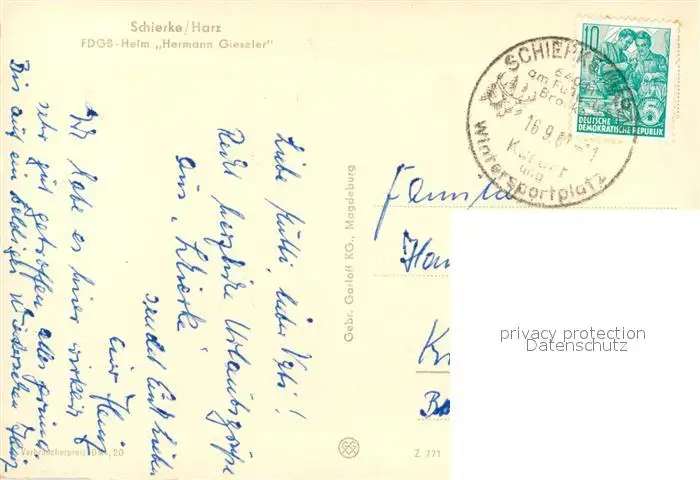 Schierke/Harz
FDGB-Heim „Hermann Gieseler"
Liebe Mutti, lieber Vati!
Recht herzliche Urlaubsgrüße
aus „Schierke"
sendet Euch
euer Heinz
Ich habe es hier wirklich
sehr gut getroffen, alles prima
Bis auf ein baldiges Wiedersehen Heinz
Verbraucherpreis DM -,20
Gebr. Garloff KG., Magdeburg
Z 771
SCHIERKE
am Fuße
16.9.
Kurort
und
Wintersportplatz
10
5
DEUTSCHE
DEMOKRATISCHE REPUBLIK
Familie
privacy protection
Datenschutz